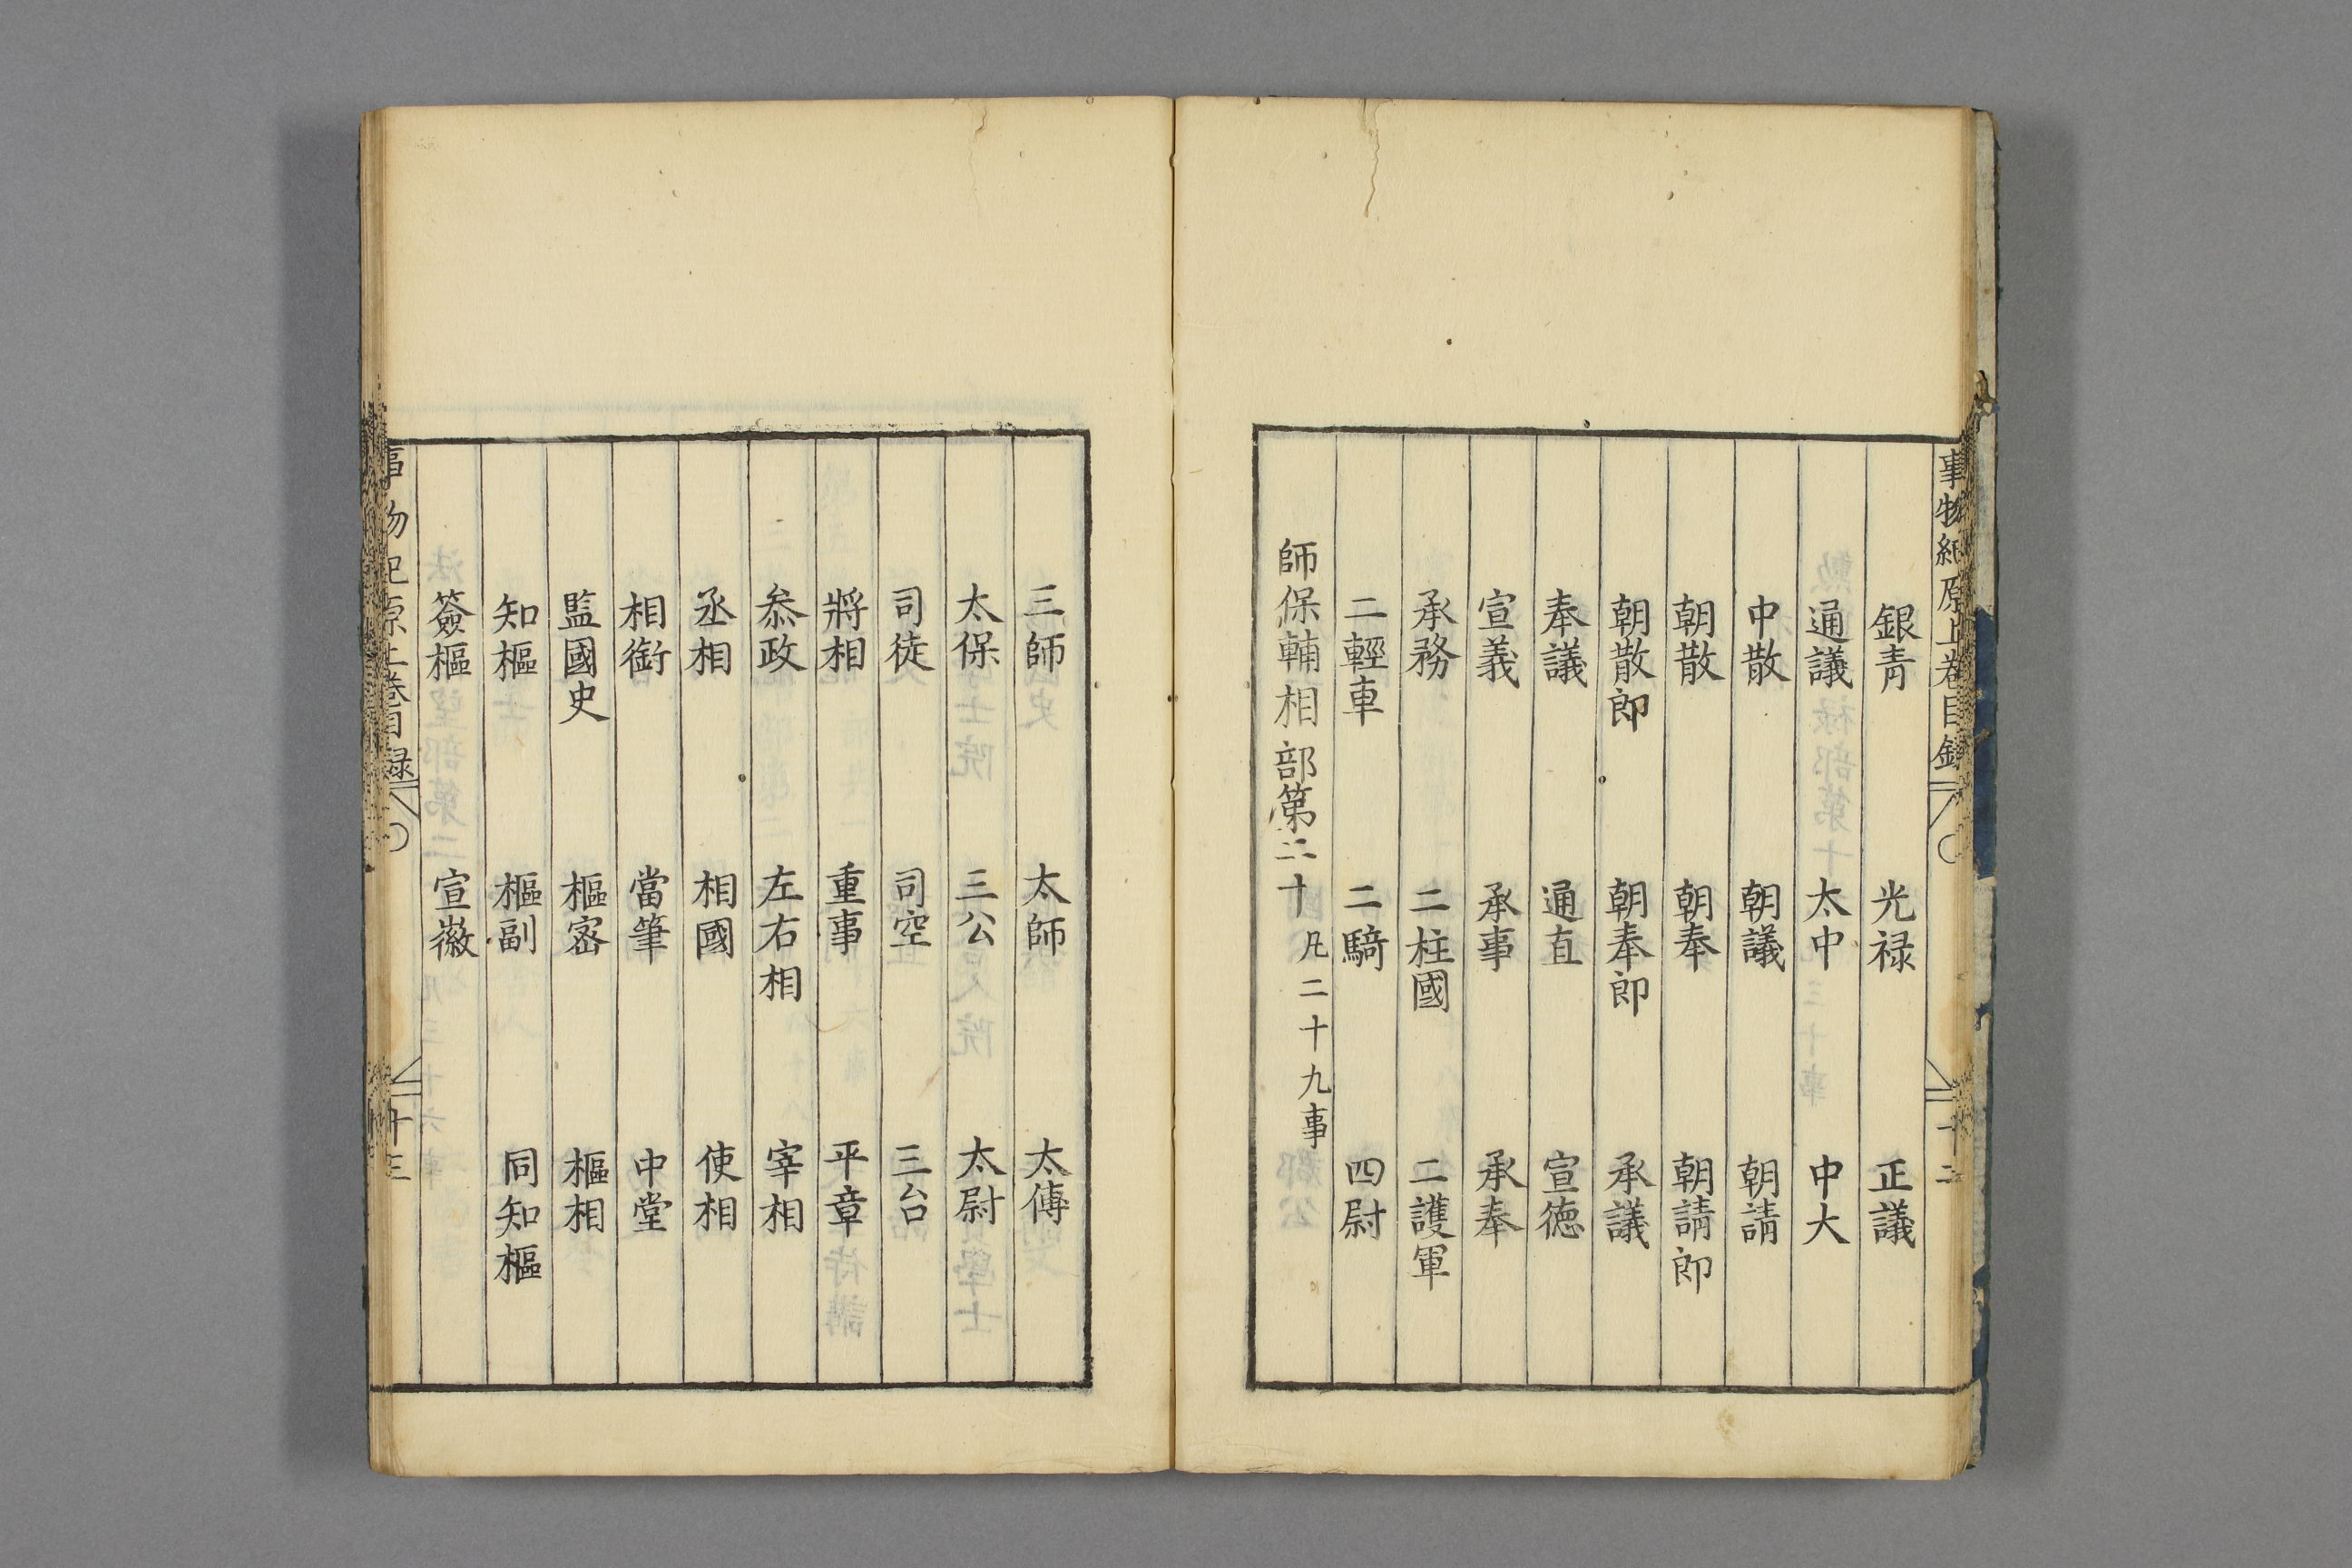 事物紀原上卷目錄 十二
銀青 光禄 正議
通議 太中 中大
中散 朝議 朝請
朝散 朝奉 朝請郎
朝散郎 朝奉郎 承議
奉議 通直 宣德
宣義 承事 承奉
承務 二柱國 二護軍
二輕車 二騎 四尉
師保輔相部第二十 凡二十九事
三師 太師 太傅
太保 三公 太尉
司徒 司空 三台
將相 重事 平章
叅政 左右相 宰相
丞相 相國 使相
相銜 當筆 中堂
監國史 樞密 樞相
知樞 樞副 同知樞
簽樞 宣徽
事物紀原上卷目録 十三